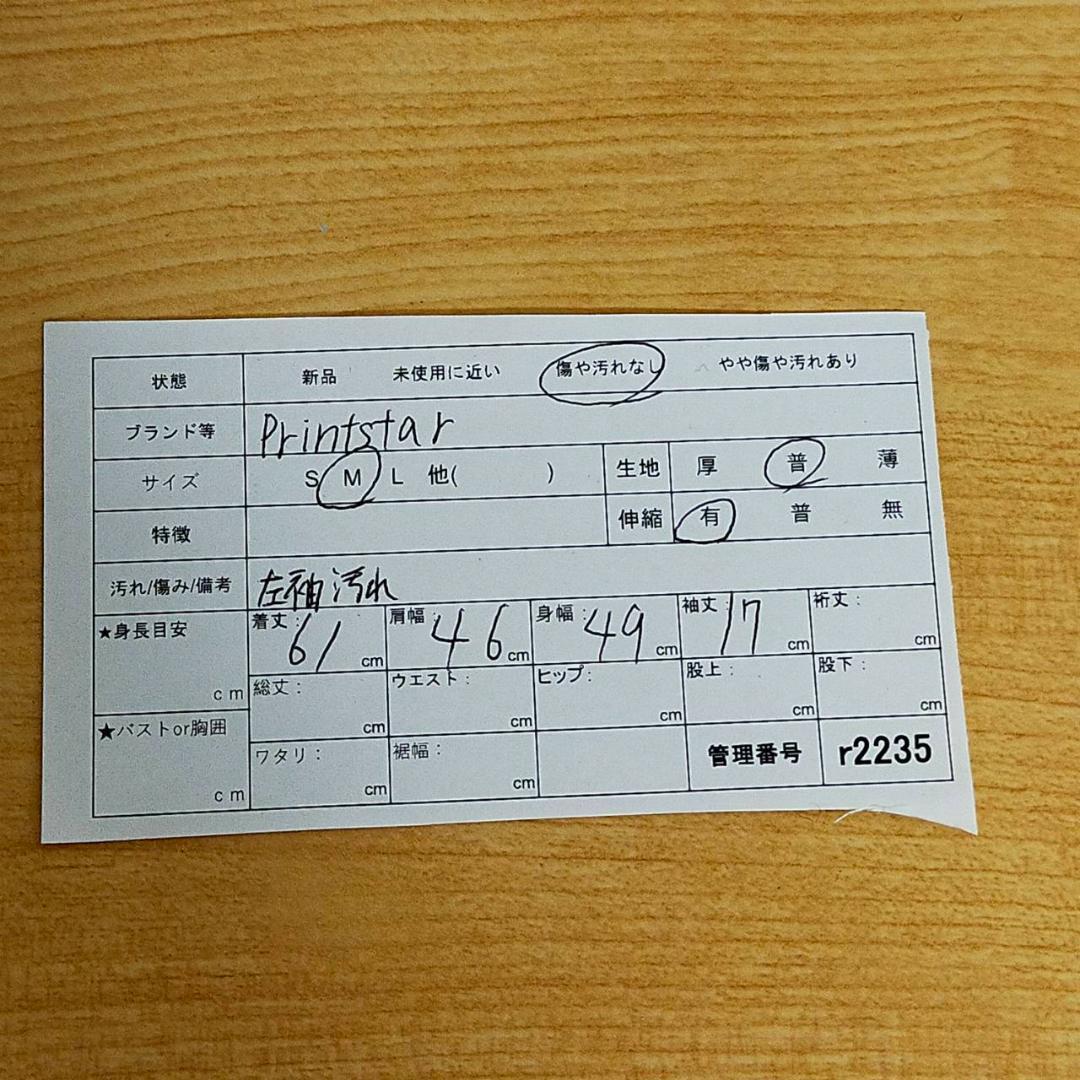 状態 新品 未使用に近い 傷や汚れなし やや傷や汚れあり
ブランド等 Printstar
サイズ S M L 他( ) 生地 厚 普 薄
特徴 伸縮 有 普 無
汚れ/傷み/備考 左袖汚れ
★身長目安 cm 着丈: 61 cm 肩幅: 46 cm 身幅: 49 cm 袖丈: 17 cm 裄丈: cm
総丈: cm ウエスト: cm ヒップ: cm 股上: cm 股下: cm
★バストor胸囲 cm ワタリ: cm 裾幅: cm 管理番号 r2235